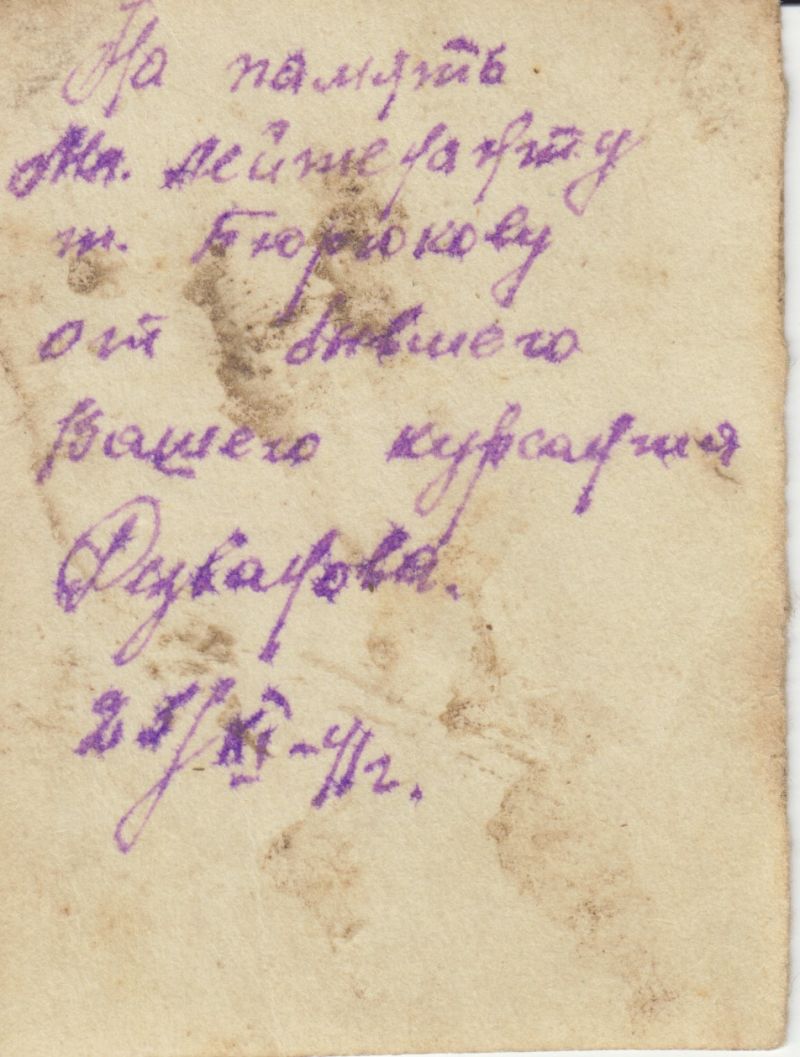 На память
Мл. лейтенанту
т. Бюрюкову
от бывшего
Вашего курсанта
25/XI-41г.